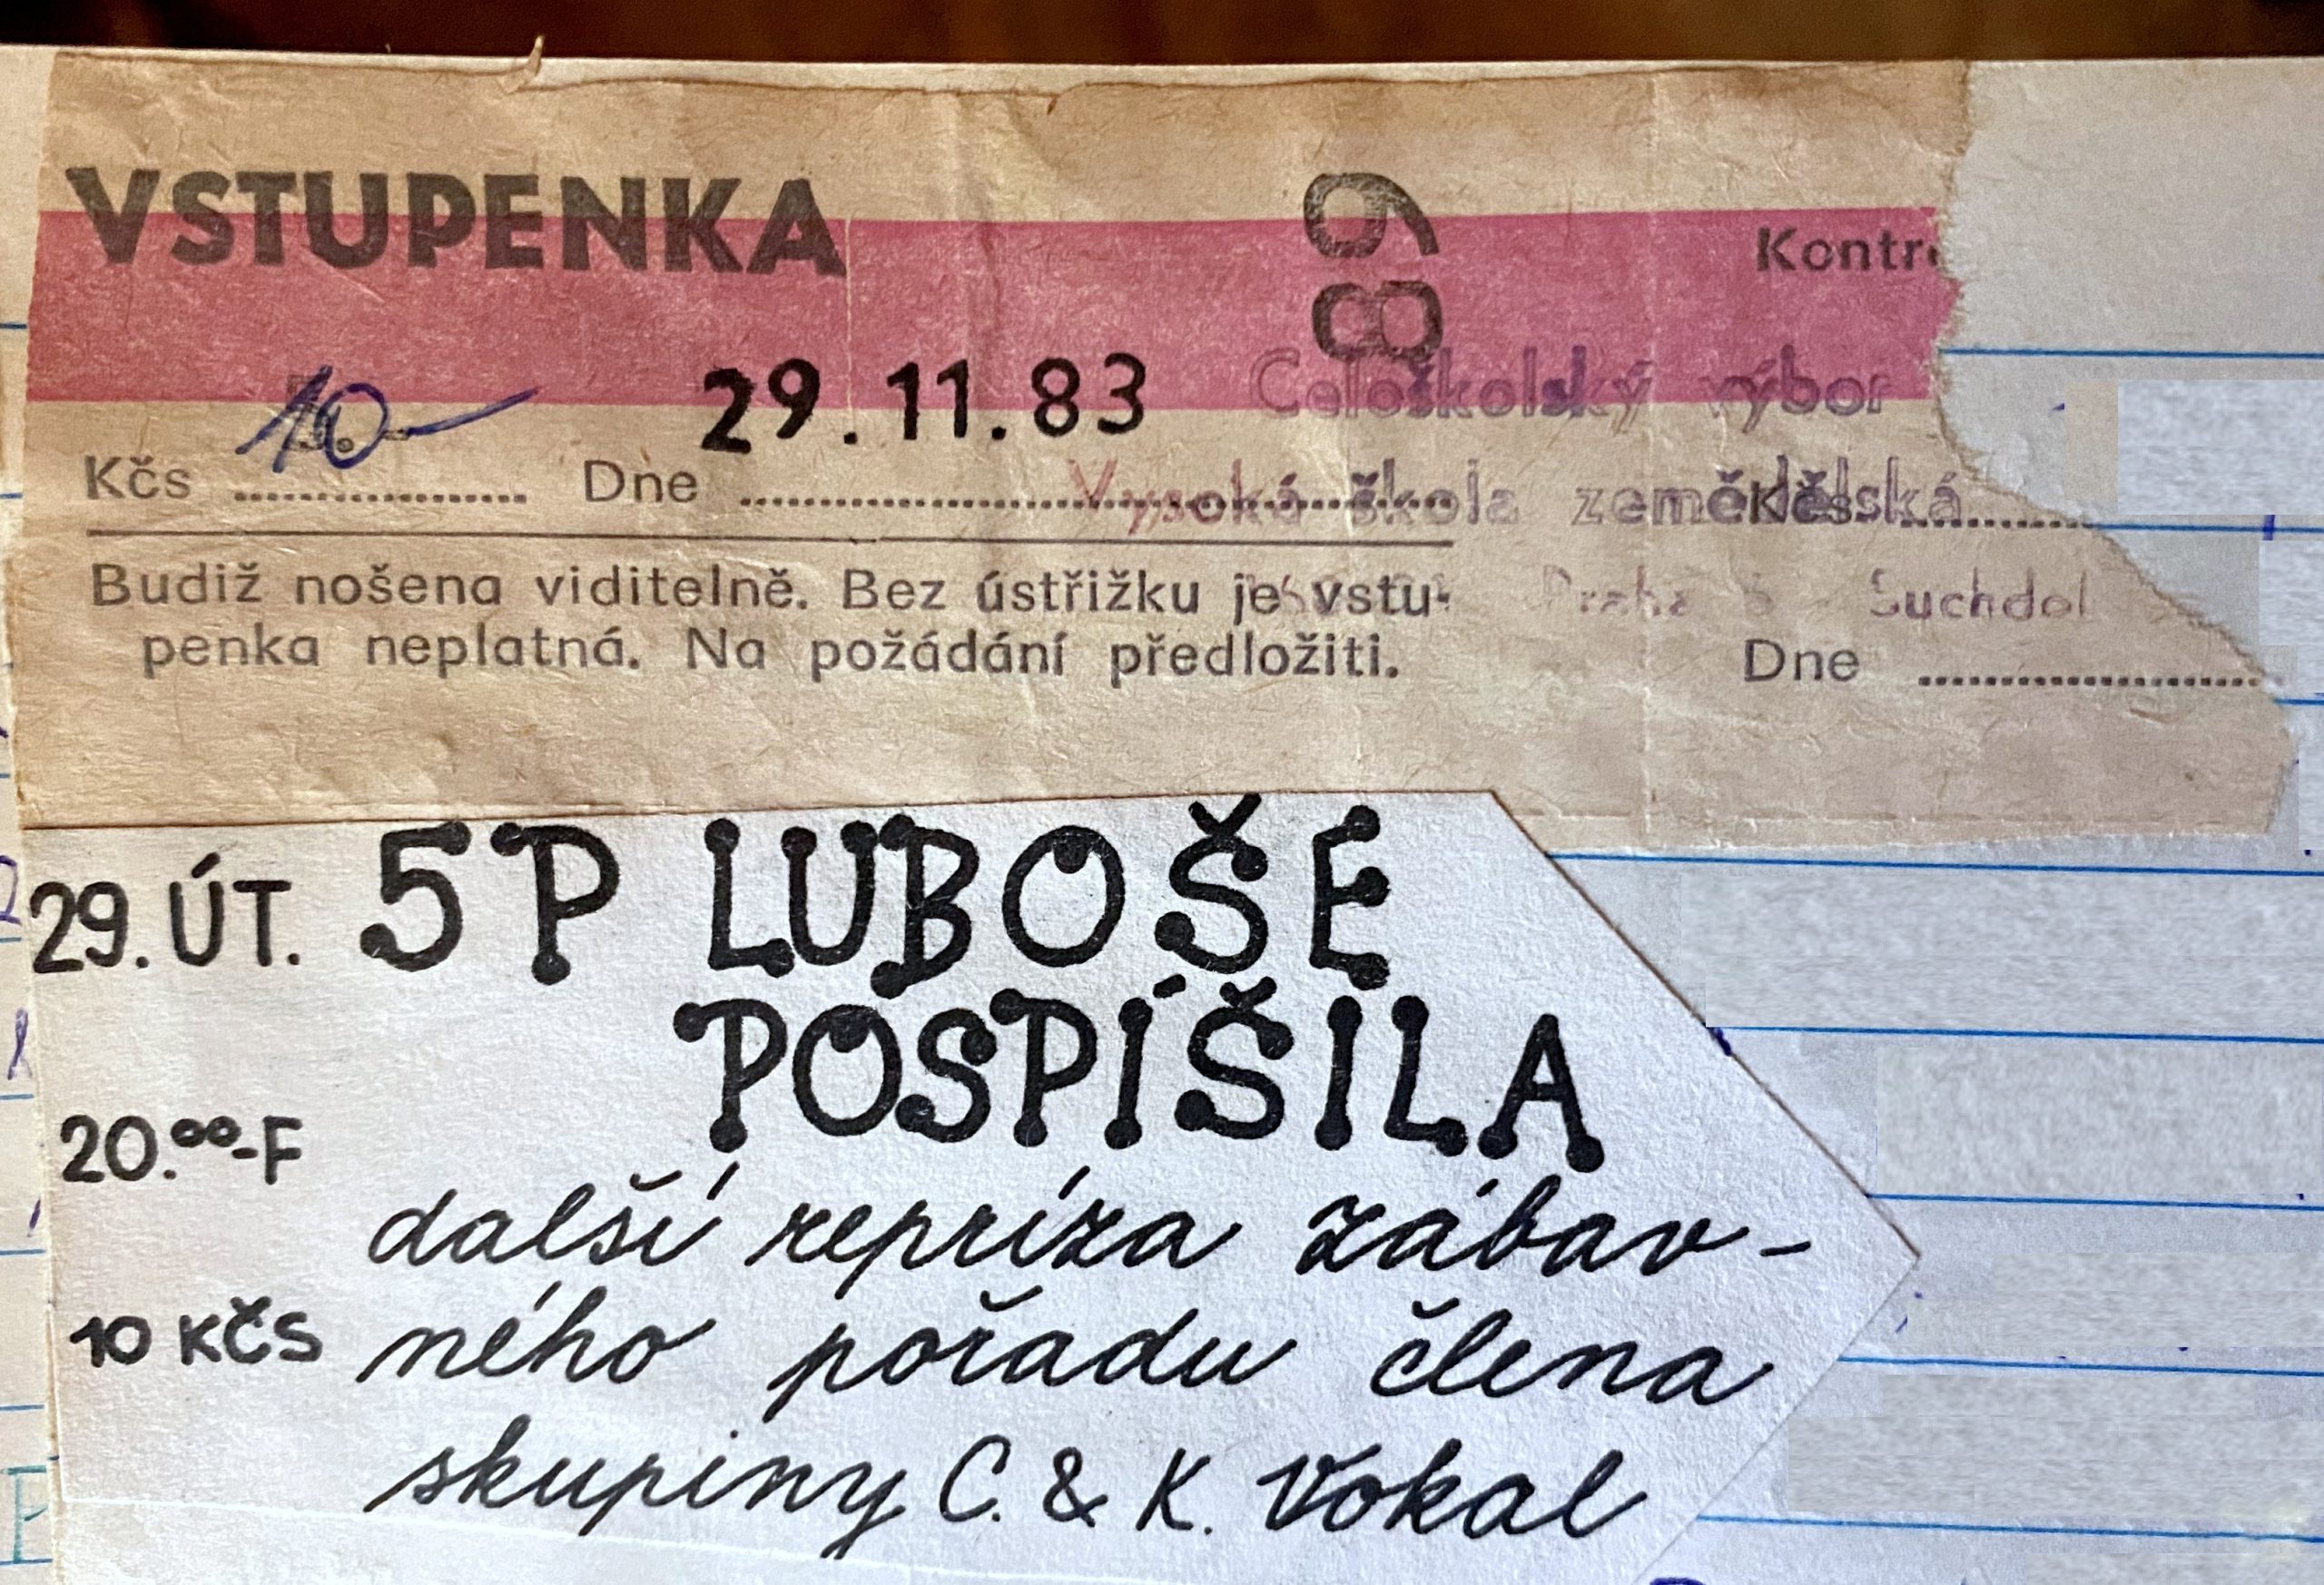 VSTUPENKA
89
Kontr
10.-
29.11.83
Celoškolský výbor
Kčs Dne
Vysoká škola zemědělská
Kčs
Budiž nošena viditelně. Bez ústřižku je vstu-
penka neplatná. Na požádání předložiti.
Praha Suchdol
Dne
29. ÚT. 5P LUBOŠE
POSPÍŠILA
20.00-F
další repríza zábav-
10 KČS ného pořadu člena
skupiny C. & K. Vokal